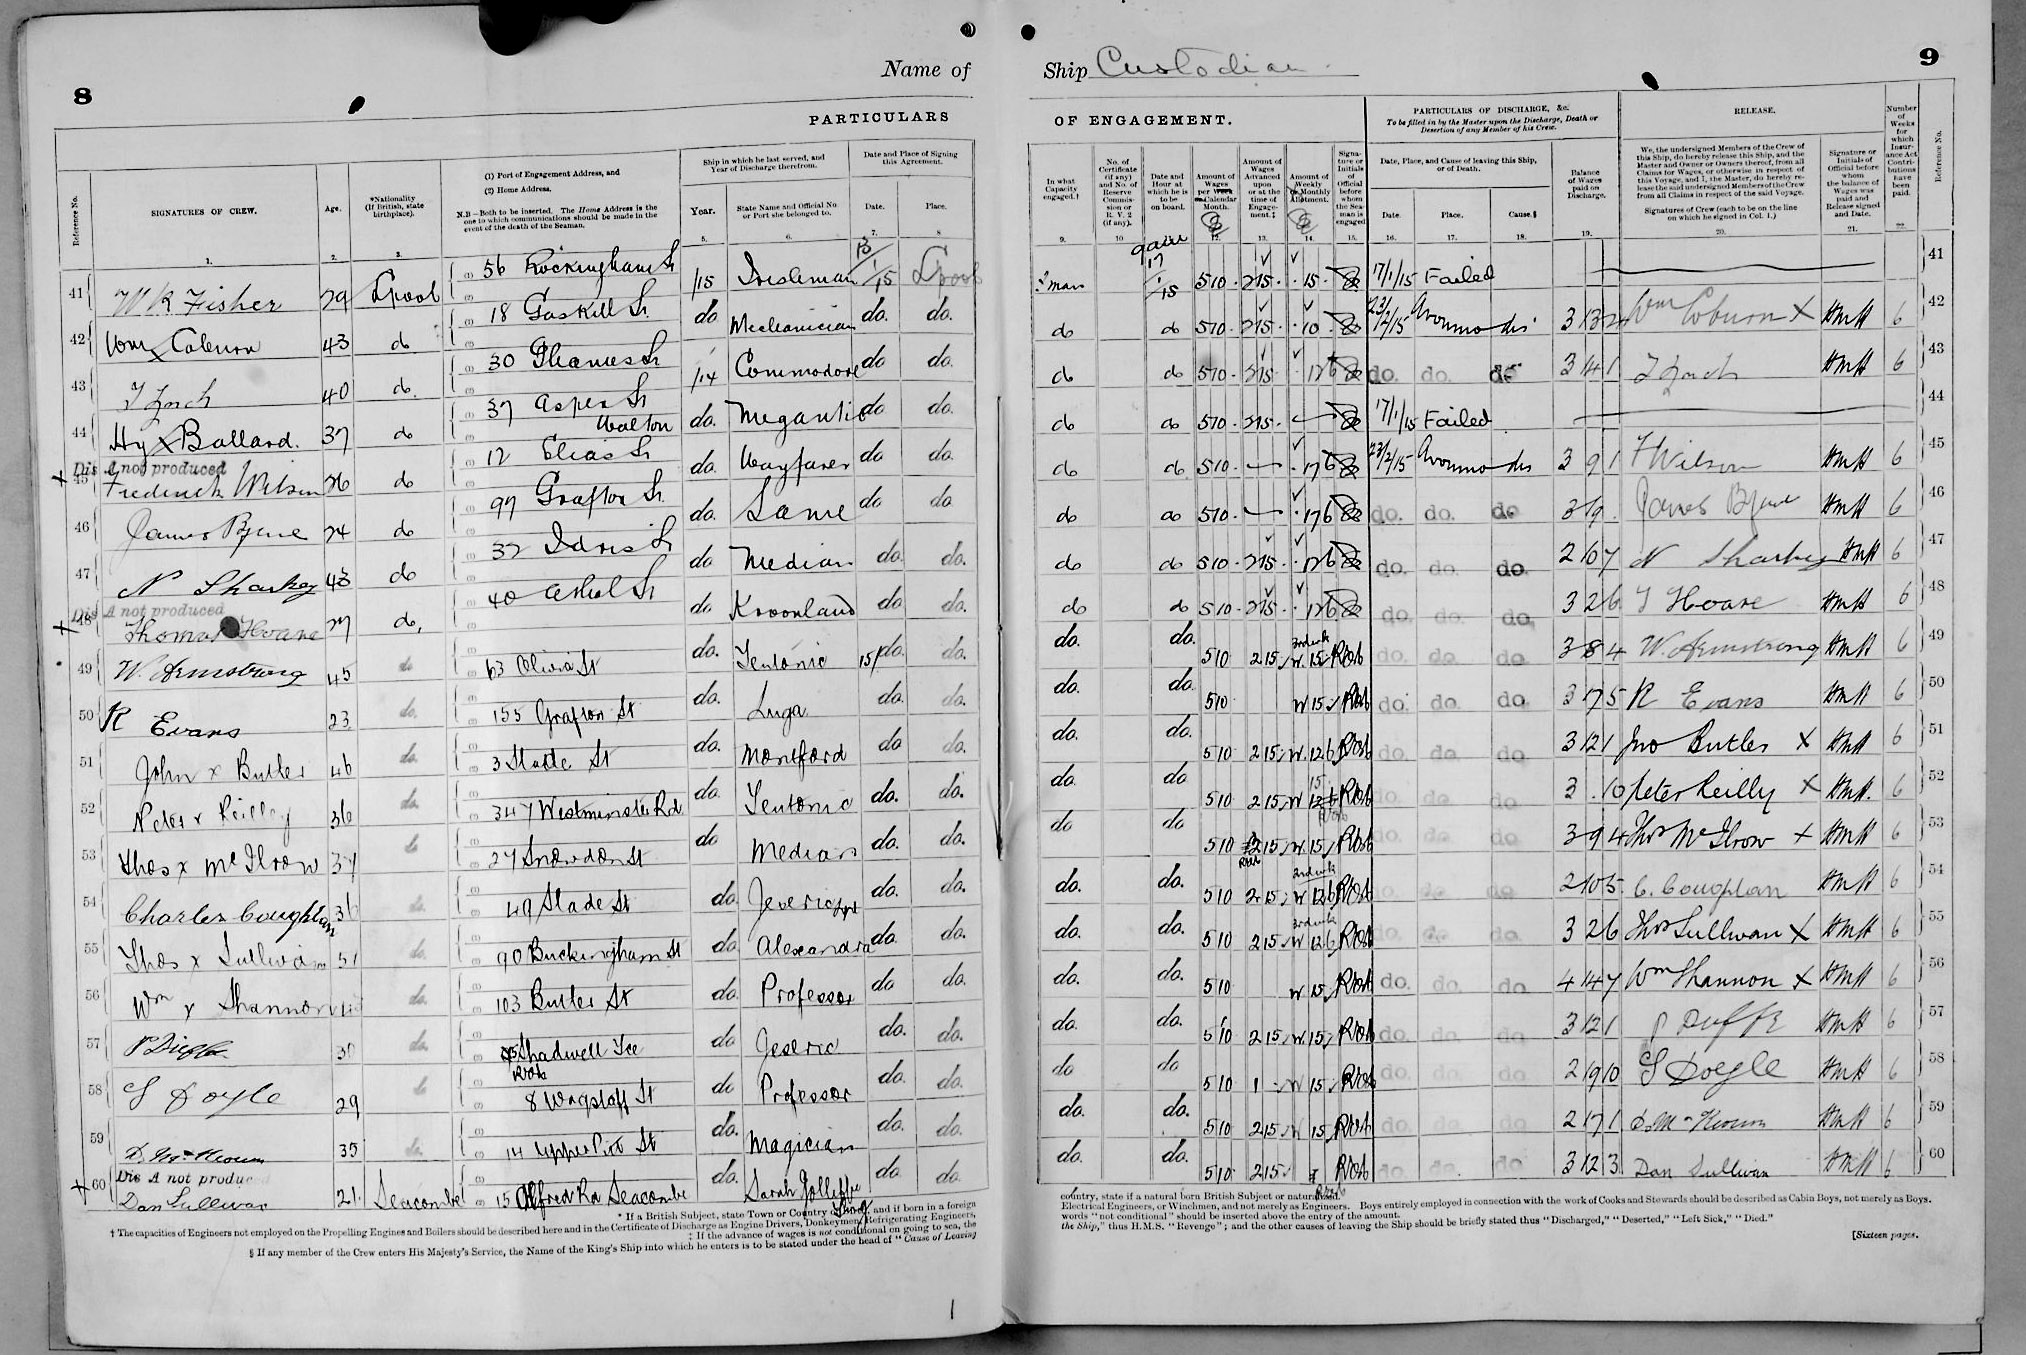 8
Name of
Ship Custodian
9
PARTICULARS
OF ENGAGEMENT.
PARTICULARS OF DISCHARGE, &c.
To be filled in by the Master upon the Discharge, Death or Desertion of any Member of his Crew.
RELEASE.
Reference No.
SIGNATURES OF CREW.
Age.
*Nationality (If British, state birthplace).
(1) Port of Engagement Address, and
(2) Home Address.
N.B—Both to be inserted. The Home Address is the one to which communications should be made in the event of the death of the Seaman.
Ship in which he last served, and Year of Discharge therefrom.
Year.
State Name and Official No or Port she belonged to.
Date and Place of Signing this Agreement.
Date.
Place.
In what Capacity engaged.†
No. of Certificate (if any) and No. of Reserve Commission or R. V. 2 (if any).
Date and Hour at which he is to be on board.
Amount of Wages per Week or Calendar Month.
Amount of Wages Advanced upon or at the time of Engagement.‡
Amount of Weekly or Monthly Allotment.
Signature or Initials of Official before whom the Seaman is engaged
Date, Place, and Cause of leaving this Ship, or of Death.
Date.
Place.
Cause.§
Balance of Wages paid on Discharge.
We, the undersigned Members of the Crew of this Ship, do hereby release this Ship, and the Master and Owner or Owners thereof, from all Claims for Wages, or otherwise in respect of this Voyage, and I, the Master, do hereby release the said undersigned Members of the Crew from all Claims in respect of the said Voyage.
Signatures of Crew (each to be on the line on which he signed in Col. 1.)
Signature or Initials of Official before whom the balance of Wages was paid and Release signed and Date.
Number of Weeks for which Insurance Act Contributions have been paid.
Reference No.
1. 2. 3. 5. 6. 7. 8 9. 10 12. 13. 14. 15. 16. 17. 18. 19. 20. 21. 22.
41 W R Fisher 29 Lpool 56 Rockingham St /15 Irishman 13/1/15 Lpool 17/1/15 510 215 15 17/1/15 Failed 41
42 Wm X Coburn 43 do 18 Gaskill St do Mechanician do. do. do do 510 215 10 23/2/15 Avonmo dis 3 13 2 Wm Coburn X HMH 6 42
43 T Lynch 40 do. 30 Thames St /14 Commodore do do. do do 510 215 126 do. do. do 3 4 1 T Lynch HMH 6 43
44 Hy X Ballard. 37 do 37 Aspen St Walton do. Megantic do do. do do 510 215 17/1/15 Failed 44
Dis A not produced
45 Frederick Wilson 26 do 12 Elias St do. Wayfarer do do. do do 510 176 23/2/15 Avonmo dis 3 9 1 F Wilson HMH 6 45
46 James Byrne 24 do 97 Grafton St do. Same do do do do 510 176 do. do. do 3 9 James Byrne HMH 6 46
47 N Sharkey 43 do 32 Idris St do Median do. do. do do 510 215 126 do. do. do. 2 10 7 N Sharkey HMH 6 47
Dis A not produced
48 Thomas Hoare 27 do, 40 Athol St do Kroonland do. do. do do 510 215 126 do. do. do. 3 2 6 T Hoare HMH 6 48
49 W. Armstrong 45 do 63 Olivia St do. Teutonic 15/ do. do. do. do. 510 215 W. 15 do. do do 3 8 4 W. Armstrong HMH 6 49
50 R Evans 23 do. 155 Grafton St do. Luga do. do. do. do. 510 W 15 do. do. do. 3 17 5 R Evans HMH 6 50
51 John x Butler 46 do. 3 Slade St do. Montford do do. do. do. 510 215 W. 126 do. do. do. 3 12 1 Jno Butler X HMH 6 51
52 Peter x Reilly 36 do. 347 Westminster Rd do. Teutonic do. do. do. do 510 215 W 15 do do do 3 . 10 Peter Reilly X HMH. 6 52
53 Thos x McIlrow 37 do 27 Snowdon St do Median do. do. do do 510 215 W. 15 do. do. do. 3 9 4 Thos McIlrow + HMH 6 53
54 Charles Coughlan 36 do. 49 Slade St do. Jeveric do. do. do. do. 510 215 W 126 do. do do. 2 10 5 C. Coughlan HMH 6 54
55 Thos x Sullivan 51 do. 90 Buckingham St do. Alexandra do. do. do. do. 510 215 W 126 do. do. do. 3 2 6 Thos Sullivan X HMH 6 55
56 Wm x Shannon do. 103 Butler St do. Professor do do. do. do. 510 W 15 do. do. do. 4 14 7 Wm Shannon X HMH 6 56
57 30 do. Shadwell Tce do Jeseric do. do. do. do. 510 215 W. 15 do. do. do. 3 12 1 P Duffy HMH 6 57
58 S Doyle 29 do 8 Wagstaff St do Professor do. do. do do 510 1 W 15 do. do. do 2 19 10 S Doyle HMH 6 58
59 D. McKeown 35 do. 14 Upper Pitt St do. Magician do. do. do. do. 510 215 W 15 do do do 2 17 1 D. McKeown HMH 6 59
Dis A not produced
60 Dan Sullivan 21. Seacombe 15 Alfred Rd Seacombe do. Sarah Jolliffe do. do. do. do. 510 215 do do. do 3 12 3 Dan Sullivan HMH 6 60
* If a British Subject, state Town or Country of birth, and if born in a foreign
country, state if a natural born British Subject or naturalised.
† The capacities of Engineers not employed on the Propelling Engines and Boilers should be described here and in the Certificate of Discharge as Engine Drivers, Donkeymen, Refrigerating Engineers,
Electrical Engineers, or Winchmen, and not merely as Engineers. Boys entirely employed in connection with the work of Cooks and Stewards should be described as Cabin Boys, not merely as Boys.
‡ If the advance of wages is not conditional on going to sea, the
words "not conditional" should be inserted above the entry of the amount.
§ If any member of the Crew enters His Majesty's Service, the Name of the King's Ship into which he enters is to be stated under the head of "Cause of Leaving
the Ship," thus H.M.S. "Revenge"; and the other causes of leaving the Ship should be briefly stated thus "Discharged," "Deserted," "Left Sick," "Died."
[Sixteen pages.